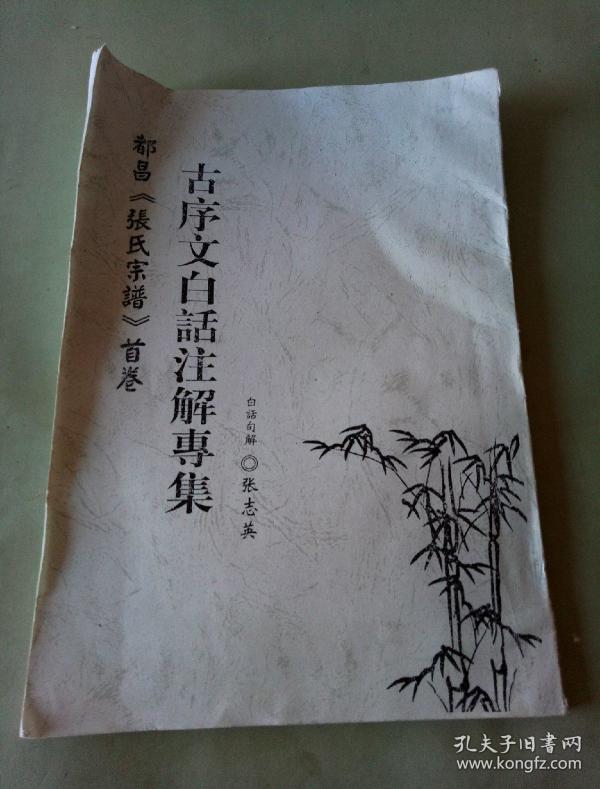 都昌《張氏宗譜》首卷
古序文白話注解專集
白話句解◎张志英
孔夫子旧书网
www.kongfz.com